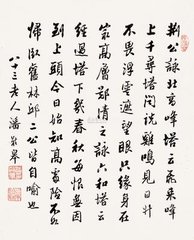 荊公詠北高峰塔云飛來峰
上千尋塔聞說雞鳴見日升
不畏浮雲遮望眼只緣身在
最高層鄭清之詠六和塔
經過塔下幾春秋每恨無因
到上頭今日始知高處險不如
歸臥舊林邱二公皆自喻也
八十三老人潘齡皋